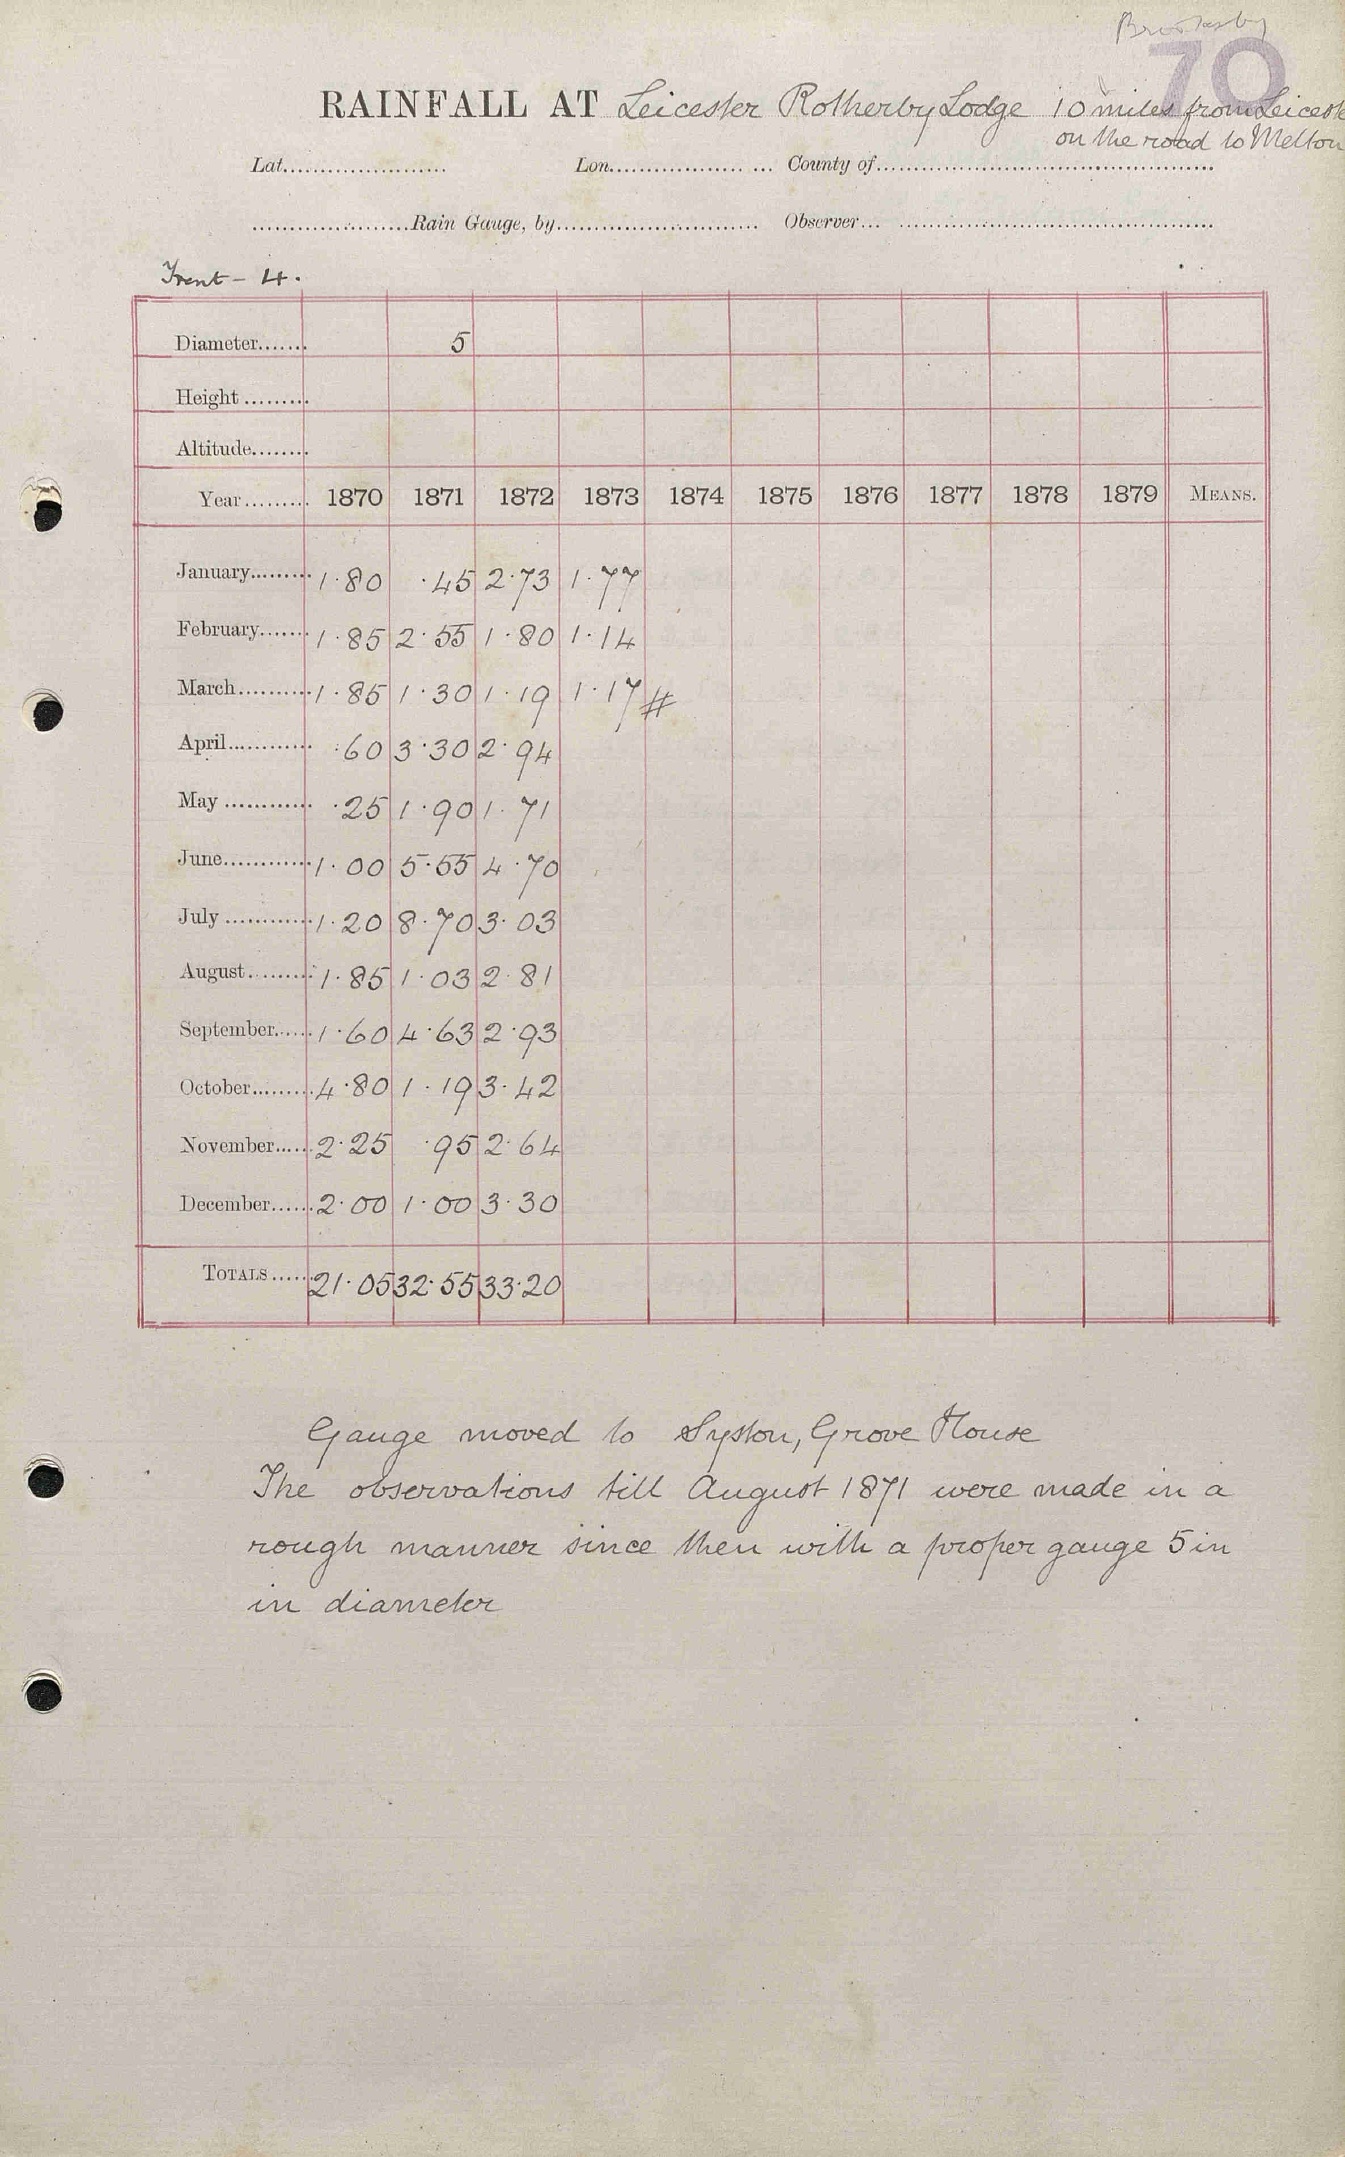 Brooksby
70
RAINFALL AT Leicester Rotherby Lodge 10 miles from Leiceste
on the road to Melton
Lat...................... Lon.................. ... County of..............................................
.....................Rain Gauge, by........................... Observer... ..........................................
Trent - 4.
Diameter....... 5
Height.........
Altitude........
Year......... 1870 1871 1872 1873 1874 1875 1876 1877 1878 1879 MEANS.
January......... 1.80 .45 2.73 1.77
February....... 1.85 2.55 1.80 1.14
March.......... 1.85 1.30 1.19 1.17 #
April............ .60 3.30 2.94
May ............ .25 1.90 1.71
June............ 1.00 5.55 4.70
July ............ 1.20 8.70 3.03
August......... 1.85 1.03 2.81
September...... 1.60 4.63 2.93
October......... 4.80 1.19 3.42
November...... 2.25 .95 2.64
December...... 2.00 1.00 3.30
TOTALS...... 21.05 32.55 33.20
Gauge moved to Syston, Grove House
The observations till August 1871 were made in a
rough manner since then with a proper gauge 5 in
in diameter